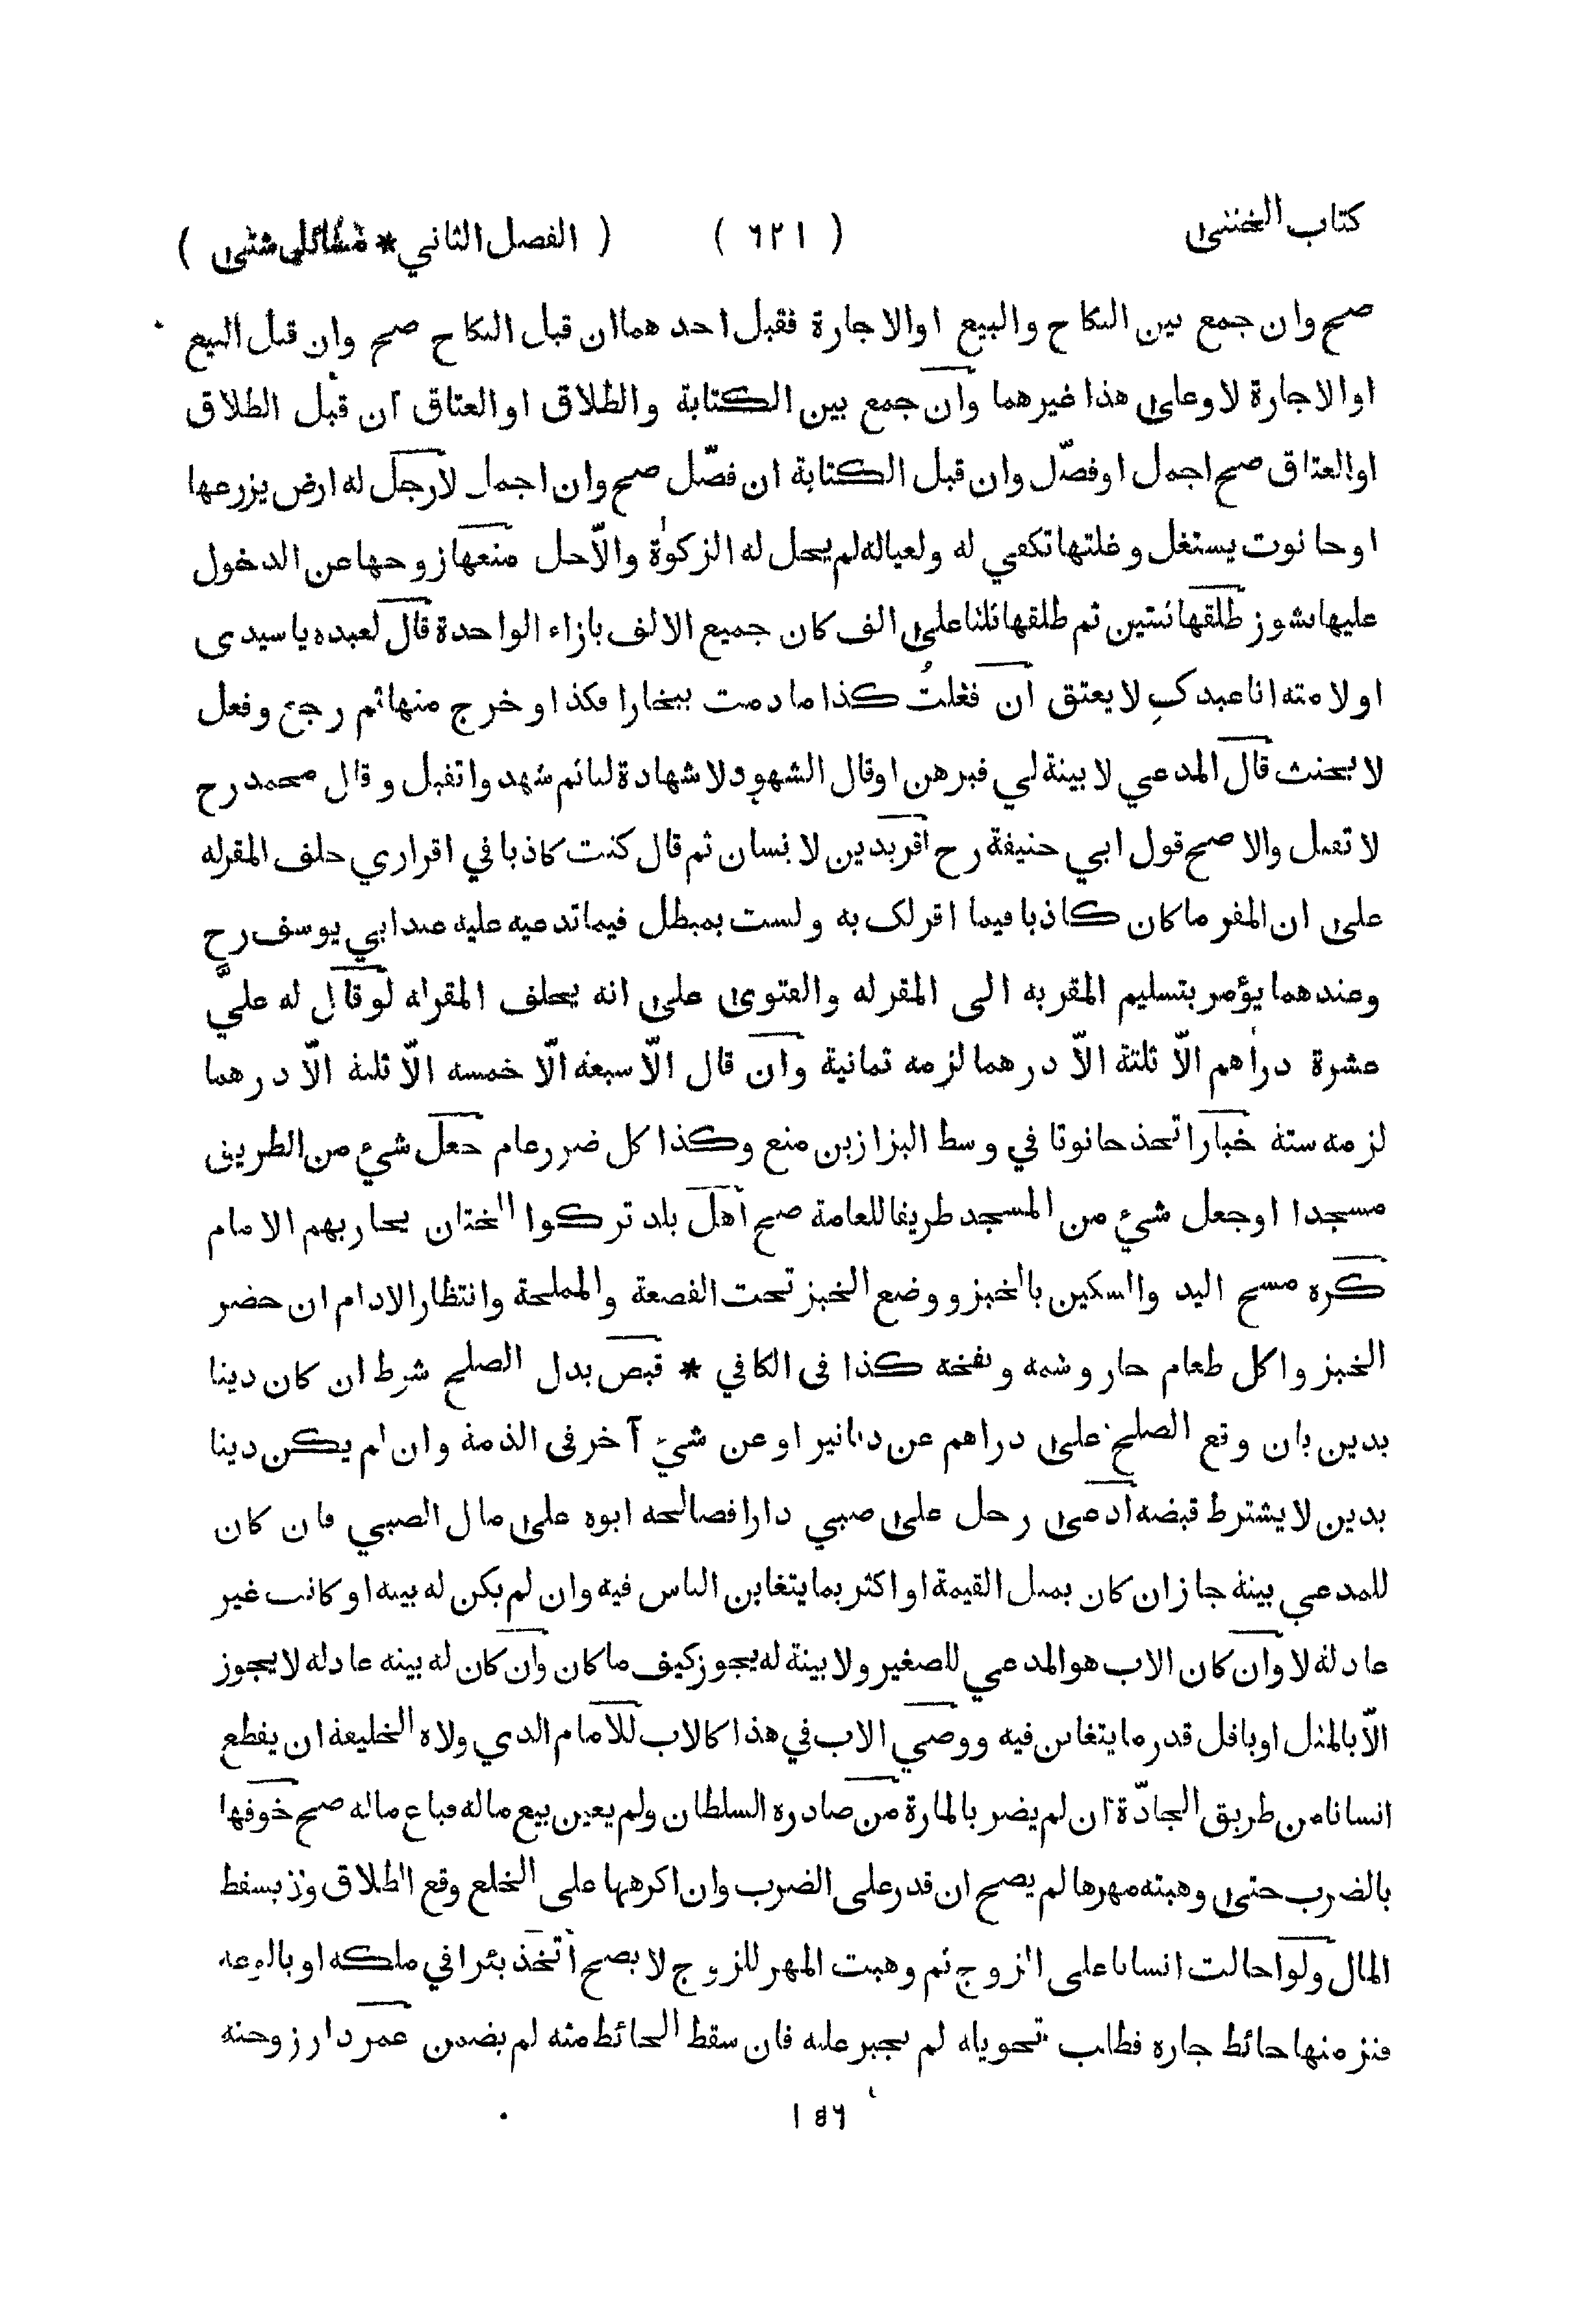 كتاب الخنثى ( ٦٢١ ) ( الفصل الثاني * مسائل شتى )
صح وان جمع بين النكاح والبيع اوالاجارة فقبل احدهما ان قبل النكاح صح وان قبل البيع
اوالاجارة لا وعلى هذا غيرهما وان جمع بين الكتابة والطلاق اوالعتاق ان قبل الطلاق
اوالعتاق صح اجمل اوفصّل وان قبل الكتابة ان فصّل صح وان اجمل لا رجل له ارض يزرعها
اوحانوت يستغل وغلتها تكفي له ولعياله لم يحل له الزكوة والّا حل منعها زوجها عن الدخول
عليها نشوز طلقها ثنتين ثم طلقها ثلثا على الف كان جميع الالف بازاء الواحدة قال لعبده ياسيدى
اولامته انا عبدكِ لا يعتق ان فعلتُ كذا مادمت ببخارا فكذا وخرج منها ثم رجع وفعل
لا يحنث قال المدعي لا بينة لي فبرهن اوقال الشهود لا شهادة لنا ثم شهدوا تقبل وقال محمد رح
لا تقبل والاصح قول ابي حنيفة رح اقر بدين لانسان ثم قال كنت كاذبا في اقراري حلف المقرله
على ان المقر ماكان كاذبا فيما اقر لك به ولست بمبطل فيما تدعيه عليه عند ابي يوسف رح
وعندهما يؤمر بتسليم المقر به الى المقر له والفتوى على انه يحلف المقرله لو قال له عليّ
عشرة دراهم الّا ثلثة الّا درهما لزمه ثمانية وان قال الّا سبعة الّا خمسة الّا ثلثة الّا درهما
لزمه ستة خباز اتخذ حانوتا في وسط البزازين منع وكذا كل ضرر عام جعل شيء من الطريق
مسجدا اوجعل شيء من المسجد طريقا للعامة صح اهل بلد تركوا الختان يحاربهم الامام
كره مسح اليد والسكين بالخبز ووضع الخبز تحت القصعة والمملحة وانتظار الادام ان حضر
الخبز واكل طعام حار وشمه ونفخه كذا فى الكافي * قبض بدل الصلح شرط ان كان دينا
بدين بان وقع الصلح على دراهم عن دنانير اوعن شيء آخر فى الذمة وان لم يكن دينا
بدين لا يشترط قبضه ادعى رجل على صبي دارا فصالحه ابوه على مال الصبي فان كان
للمدعي بينة جاز ان كان بمثل القيمة اواكثر بما يتغابن الناس فيه وان لم يكن له بينة اوكانت غير
عادلة لا وان كان الاب هوالمدعي للصغير ولا بينة له يجوز كيف ماكان وان كان له بينة عادلة لا يجوز
الّا بالمثل اوباقل قدر مايتغابن فيه ووصي الاب في هذا كالاب للامام الذي ولاه الخليفة ان يقطع
انسانا من طريق الجادّة ان لم يضر بالمارة من صادره السلطان ولم يعين بيع ماله فباع ماله صح خوفها
بالضرب حتى وهبته مهرها لم يصح ان قدر على الضرب وان اكرهها على الخلع وقع الطلاق ولا يسقط
المال ولو احالت انسانا على الزوج ثم وهبت المهر للزوج لا يصح اتخذ بئرا في ملكه اوبالوعة
فنز منها حائط جاره فطلب تحويله لم يجبر عليه فان سقط الحائط منه لم يضمن عمر دار زوجته
١٥٦